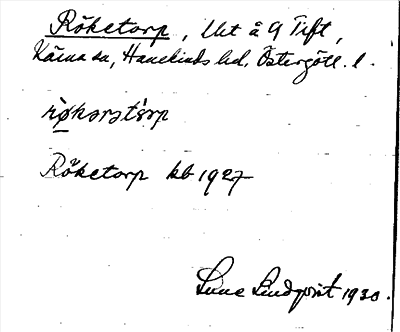 Röketorp, Utt å 9 Tift,
Kärna sn, Hanekinds hd. Östergötl. l.
rø̀kərətɔrp
Röketorp kb 1927
Sune Lindqvist 1930.